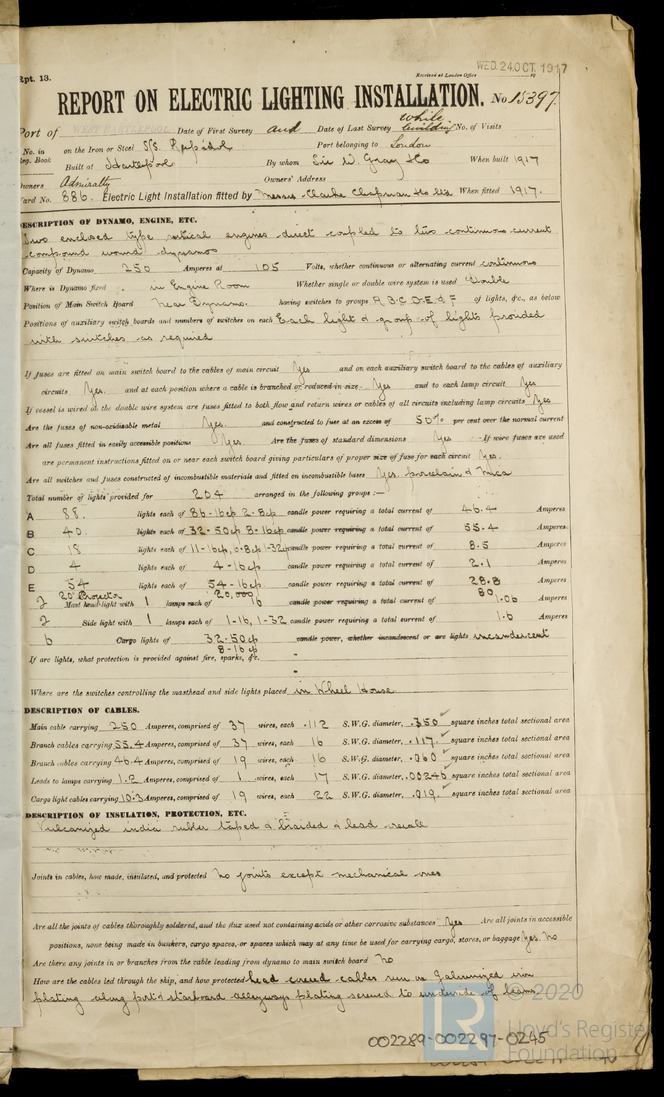 WED. 24 OCT. 1917
Rpt. 13.
Received at London Office
REPORT ON ELECTRIC LIGHTING INSTALLATION. No 15397.
Port of WEST HARTLEPOOL Date of First Survey and Date of Last Survey while building No. of Visits
No. in Reg. Book on the Iron or Steel S/S Port belonging to London
Built at Hartlepool By whom Sir W. Gray & Co When built 1917
Owners Admiralty Owners' Address
Yard No. 886. Electric Light Installation fitted by Messrs Clarke Chapman & Co Ltd When fitted 1917.
DESCRIPTION OF DYNAMO, ENGINE, ETC.
Two enclosed type vertical engines direct coupled to two continuous current
compound wound dynamos
Capacity of Dynamo 250 Amperes at 105 Volts, whether continuous or alternating current continuous
Where is Dynamo fixed in Engine Room Whether single or double wire system is used Double
Position of Main Switch Board Near Dynamo. having switches to groups A B C D E & F of lights, &c., as below
Positions of auxiliary switch boards and numbers of switches on each Each light & group of lights provided
with switches as required
If fuses are fitted on main switch board to the cables of main circuit Yes and on each auxiliary switch board to the cables of auxiliary
circuits Yes. and at each position where a cable is branched or reduced in size Yes and to each lamp circuit Yes
If vessel is wired on the double wire system are fuses fitted to both flow and return wires or cables of all circuits including lamp circuits Yes
Are the fuses of non-oxidizable metal Yes. and constructed to fuse at an excess of 50% per cent over the normal current
Are all fuses fitted in easily accessible positions Yes. Are the fuses of standard dimensions Yes If wire fuses are used
are permanent instructions fitted on or near each switch board giving particulars of proper size of fuse for each circuit Yes.
Are all switches and fuses constructed of incombustible materials and fitted on incombustible bases Yes. porcelain & mica
Total number of lights provided for 204 arranged in the following groups :—
A 88. lights each of 86-16cp 2-8cp candle power requiring a total current of 46.4 Amperes
B 40 lights each of 32-50cp 8-16cp candle power requiring a total current of 55.4 Amperes
C 18 lights each of 11-16cp, 6-8cp 1-32cp candle power requiring a total current of 8.5 Amperes
D 4 lights each of 4-16cp candle power requiring a total current of 2.1 Amperes
E 54 lights each of 54-16cp candle power requiring a total current of 28.8 Amperes
20" Projector 20,000 80
2 Mast head light with 1 lamps each of 16 candle power requiring a total current of 1.06 Amperes
2 Side light with 1 lamps each of 1-16, 1-32 candle power requiring a total current of 1.6 Amperes
6 Cargo lights of 32-50cp candle power, whether incandescent or arc lights incandescent
8-16cp
If arc lights, what protection is provided against fire, sparks, &c. -
-
Where are the switches controlling the masthead and side lights placed in Wheel House
DESCRIPTION OF CABLES.
Main cable carrying 250 Amperes, comprised of 37 wires, each .112 S.W.G. diameter, .350 square inches total sectional area
Branch cables carrying 55.4 Amperes, comprised of 37 wires, each 16 S.W.G. diameter, .117 square inches total sectional area
Branch cables carrying 46.4 Amperes, comprised of 19 wires, each 16 S.W.G. diameter, .060 square inches total sectional area
Leads to lamps carrying 1.2 Amperes, comprised of 1 wires, each 17 S.W.G. diameter, .00246 square inches total sectional area
Cargo light cables carrying 10.3 Amperes, comprised of 19 wires, each 22 S.W.G. diameter, .019 square inches total sectional area
DESCRIPTION OF INSULATION, PROTECTION, ETC.
Vulcanized india rubber taped & braided & lead
Joints in cables, how made, insulated, and protected No joints except mechanical ones
Are all the joints of cables thoroughly soldered, and the flux used not containing acids or other corrosive substances Yes Are all joints in accessible
positions, none being made in bunkers, cargo spaces, or spaces which may at any time be used for carrying cargo, stores, or baggage Yes. No
Are there any joints in or branches from the cable leading from dynamo to main switch board No
How are the cables led through the ship, and how protected Lead covered cables run on Galvanized iron
plating along port & starboard alleyways plating screwed to underside of beams
© 2020
LR
Lloyd's Register
Foundation
002289-002297-0245